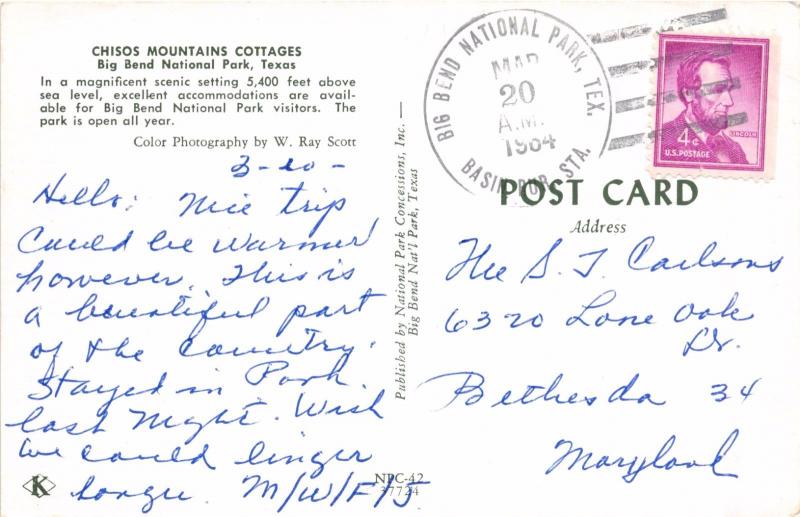 CHISOS MOUNTAINS COTTAGES
Big Bend National Park, Texas
In a magnificent scenic setting 5,400 feet above
sea level, excellent accommodations are avail-
able for Big Bend National Park visitors. The
park is open all year.
Color Photography by W. Ray Scott
3-20-
Hello: Nice trip
Could be warmer
however. This is
a beautiful part
of the country.
Stayed in Park
last night. Wish
we could linger
longer. M/W/F/J
K
NPC-42
37724
Published by National Park Concessions, Inc. —
Big Bend Nat'l Park, Texas
BIG BEND NATIONAL PARK, TEX.
MAR
20
A.M.
1964
BASIN RUR. STA.
4¢
LINCOLN
U.S. POSTAGE
POST CARD
Address
The S. T. Carlsons
6320 Lone Oak
Dr.
Bethesda 34
Maryland